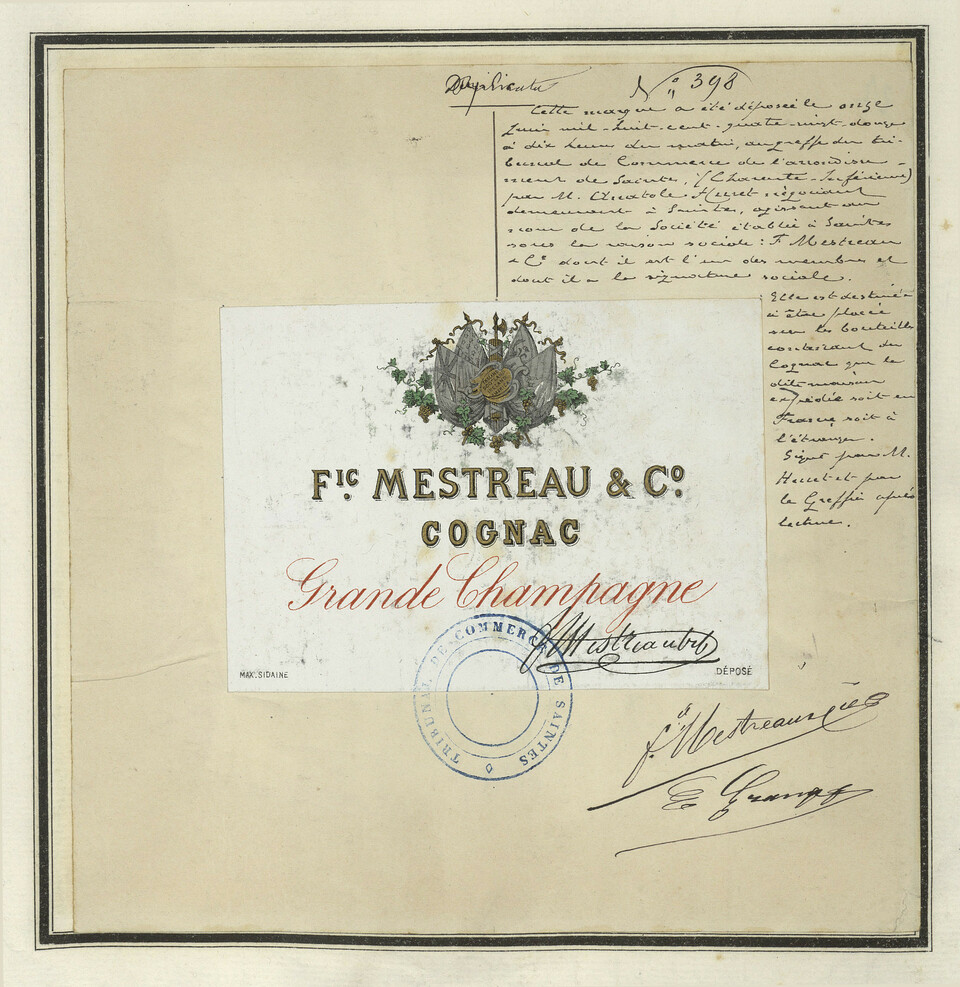 Duplicata
N° 398
Cette marque a été déposée le onze
Juin mil-huit-cent-quatre-vingt-douze
à dix heures du matin, au greffe du tri-
bunal de Commerce de l'arrondisse-
ment de Saintes, (Charente-Inférieure)
par M. Anatole Huret négociant
demeurant à Saintes, agissant au
nom de la Société établie à Saintes
sous la raison sociale: F Mestreau
& Cie dont il est l'un des membres et
dont il a la signature sociale.
Elle est destinée
à être placée
sur les bouteilles
contenant du
Cognac que la
dite maison
expédie soit en
France soit à
l'étranger.
Signé par M.
Huret et par
le Greffier après
lecture.
FIC. MESTREAU & CO.
COGNAC
Grande Champagne
MAX. SIDAINE
DÉPOSÉ
TRIBUNAL DE COMMERCE DE SAINTES
fic Mestreau & Cie